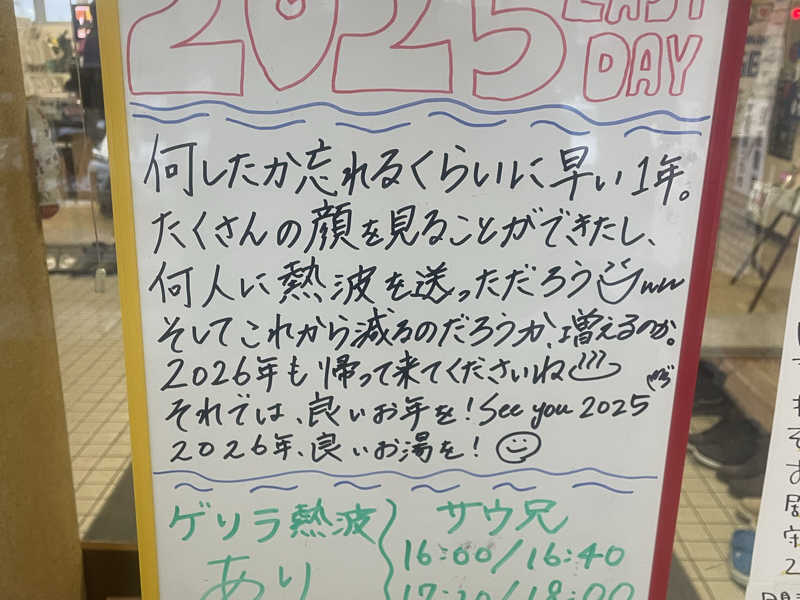 2025 LAST
DAY
何したか忘れるくらいに早い1年。
たくさんの顔を見ることができたし、
何人に熱波を送っただろうwww
そしてこれから減るのだろうか、増えるのか。
2026年も帰って来てくださいね
それでは、良いお年を!See you 2025
2026年、良いお湯を!
ゲリラ熱波
あり
サウ兄
16:00/16:40